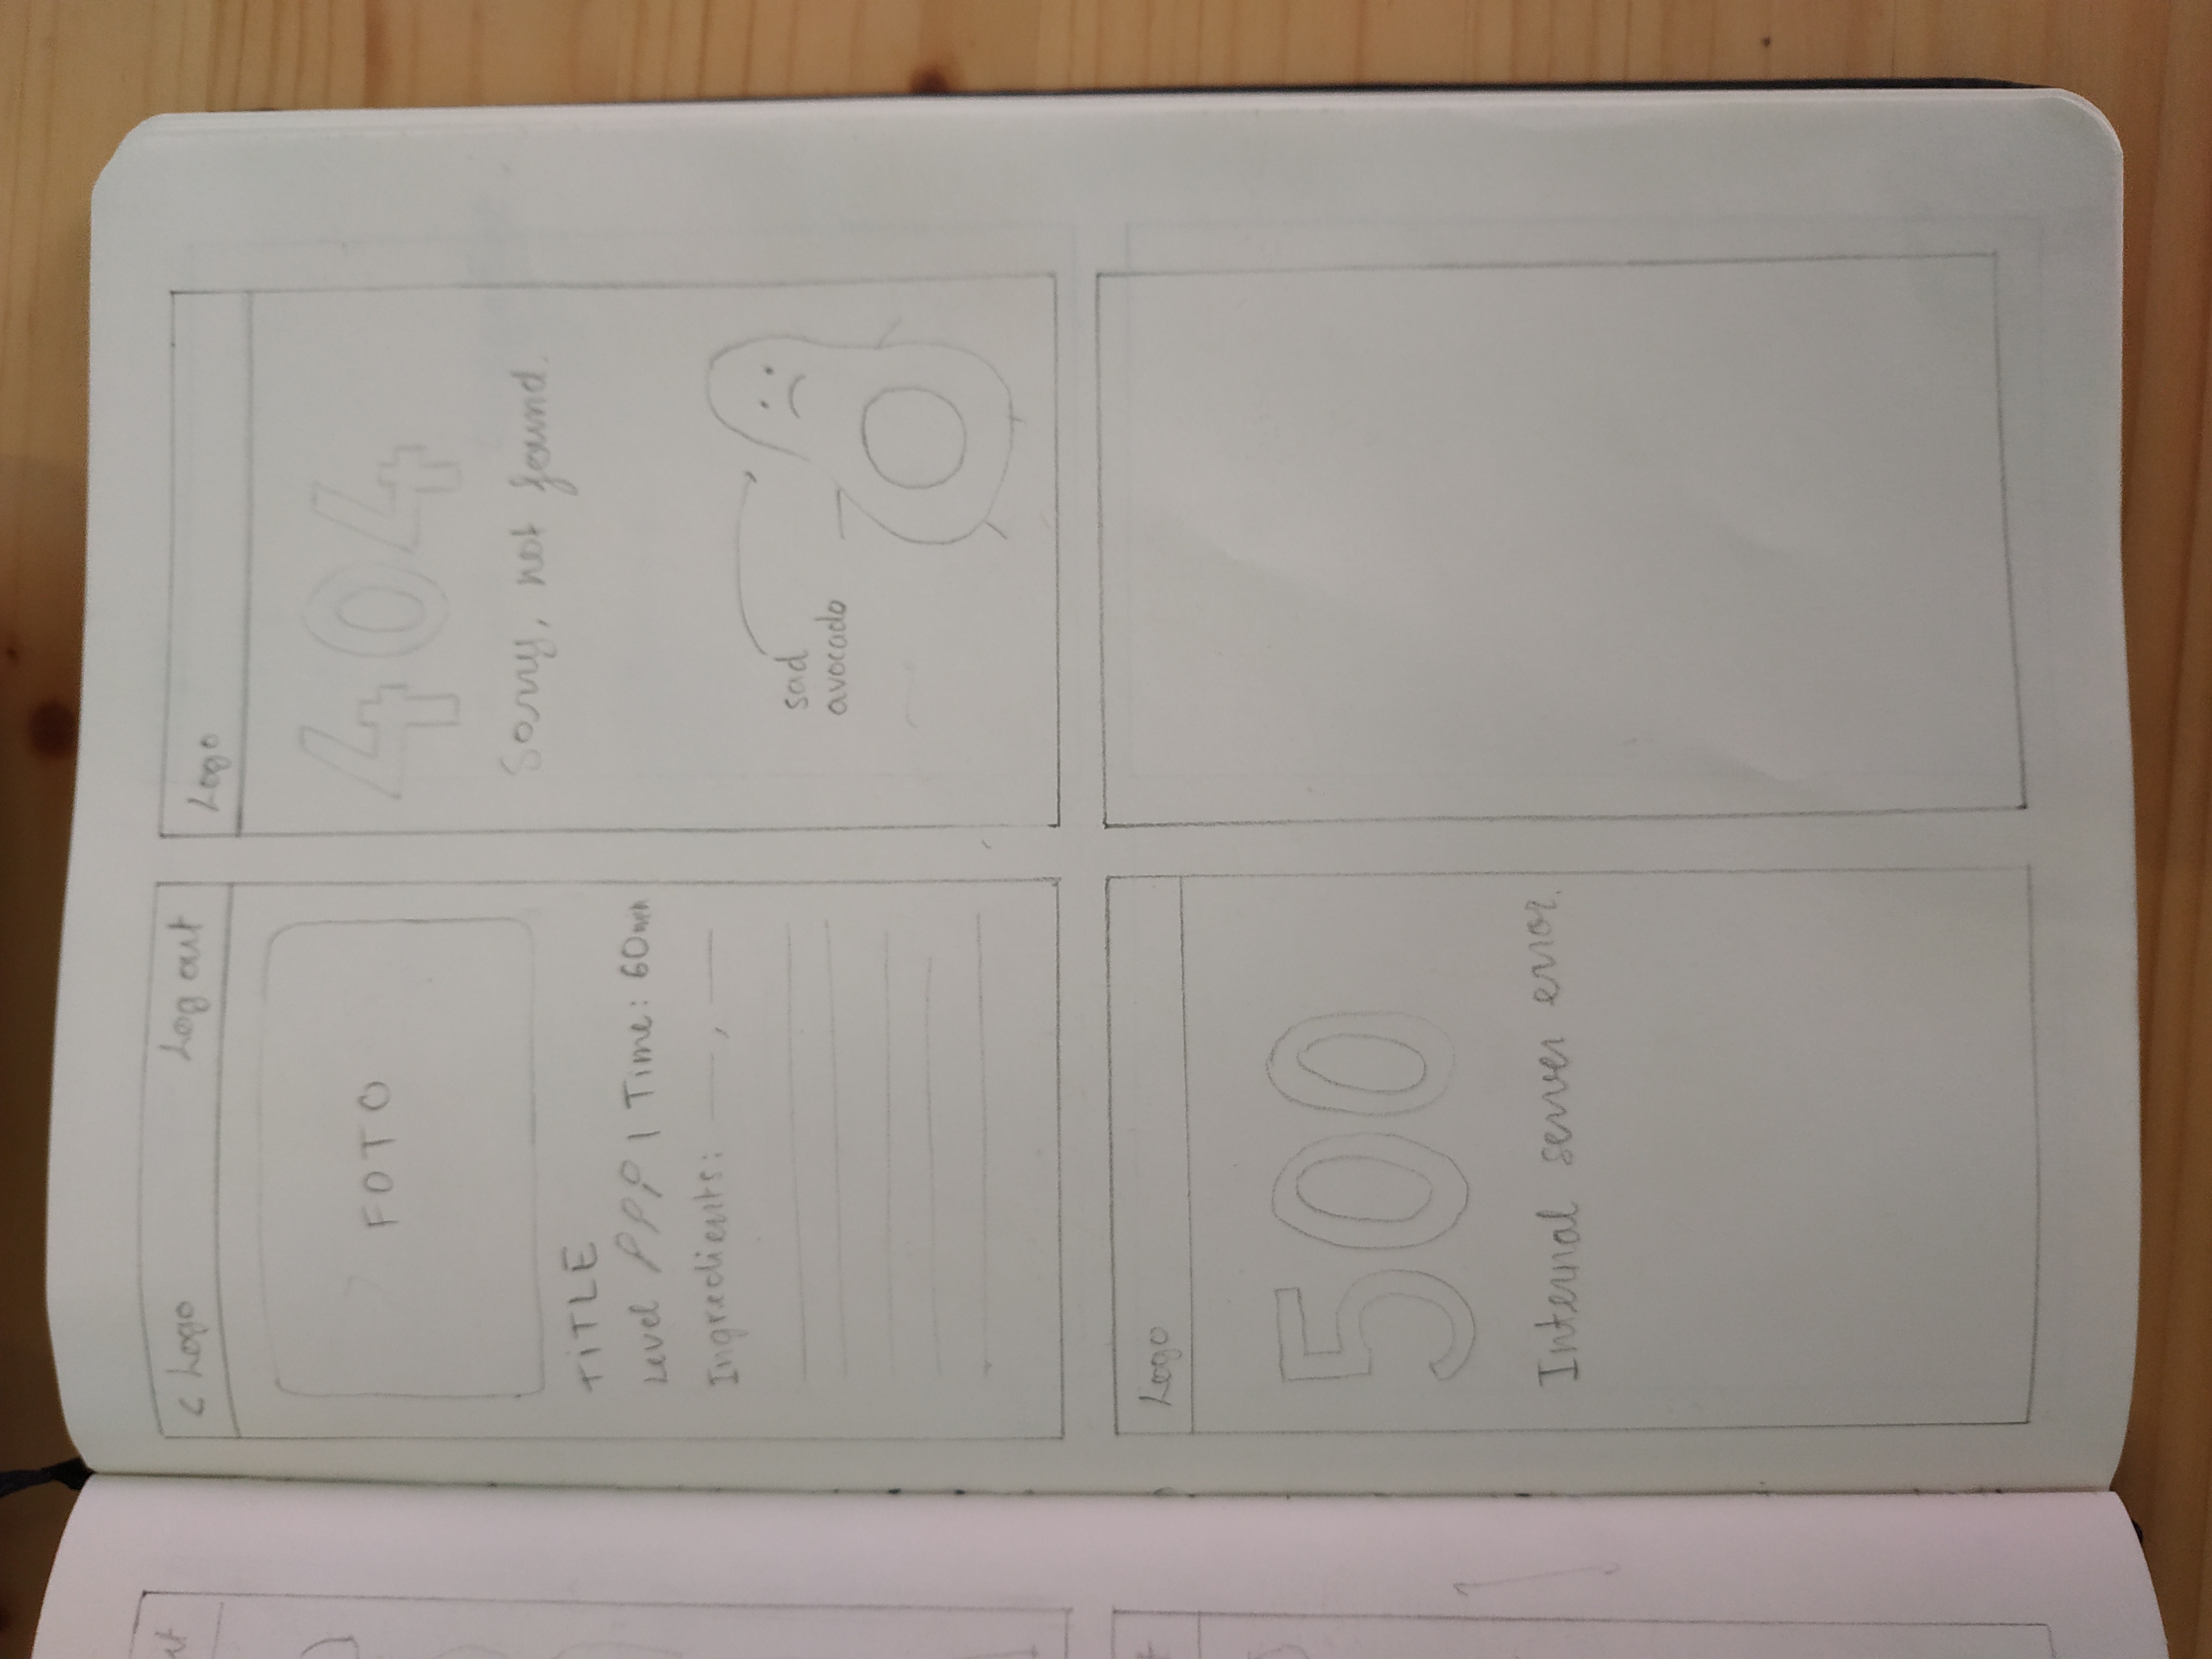 < Logo Log out
FOTO
TiTLE
Level | Time: 60min
Ingredients: — , —
Logo
404
Sorry, not found.
sad
avocado
Logo
500
Internal server error.